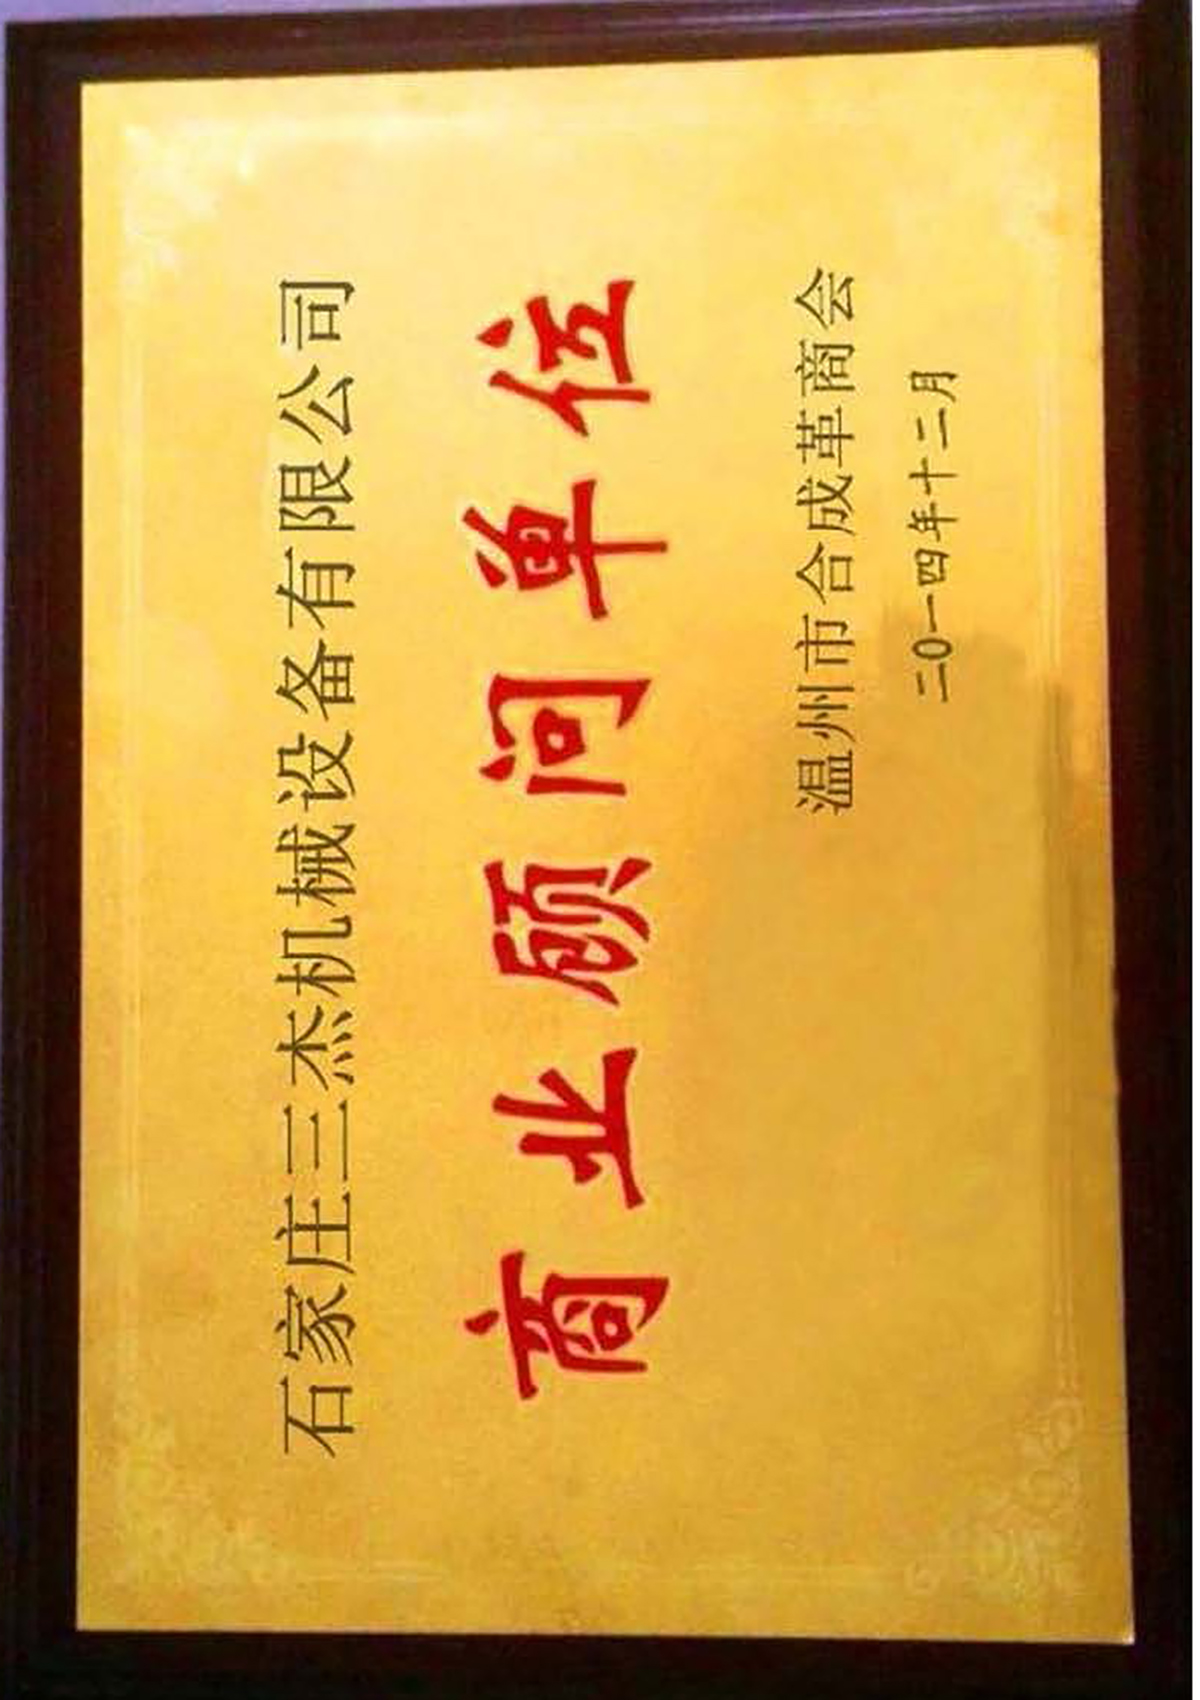 石家庄三杰机械设备有限公司
商业顾问单位
温州市合成革商会
二〇一四年十二月